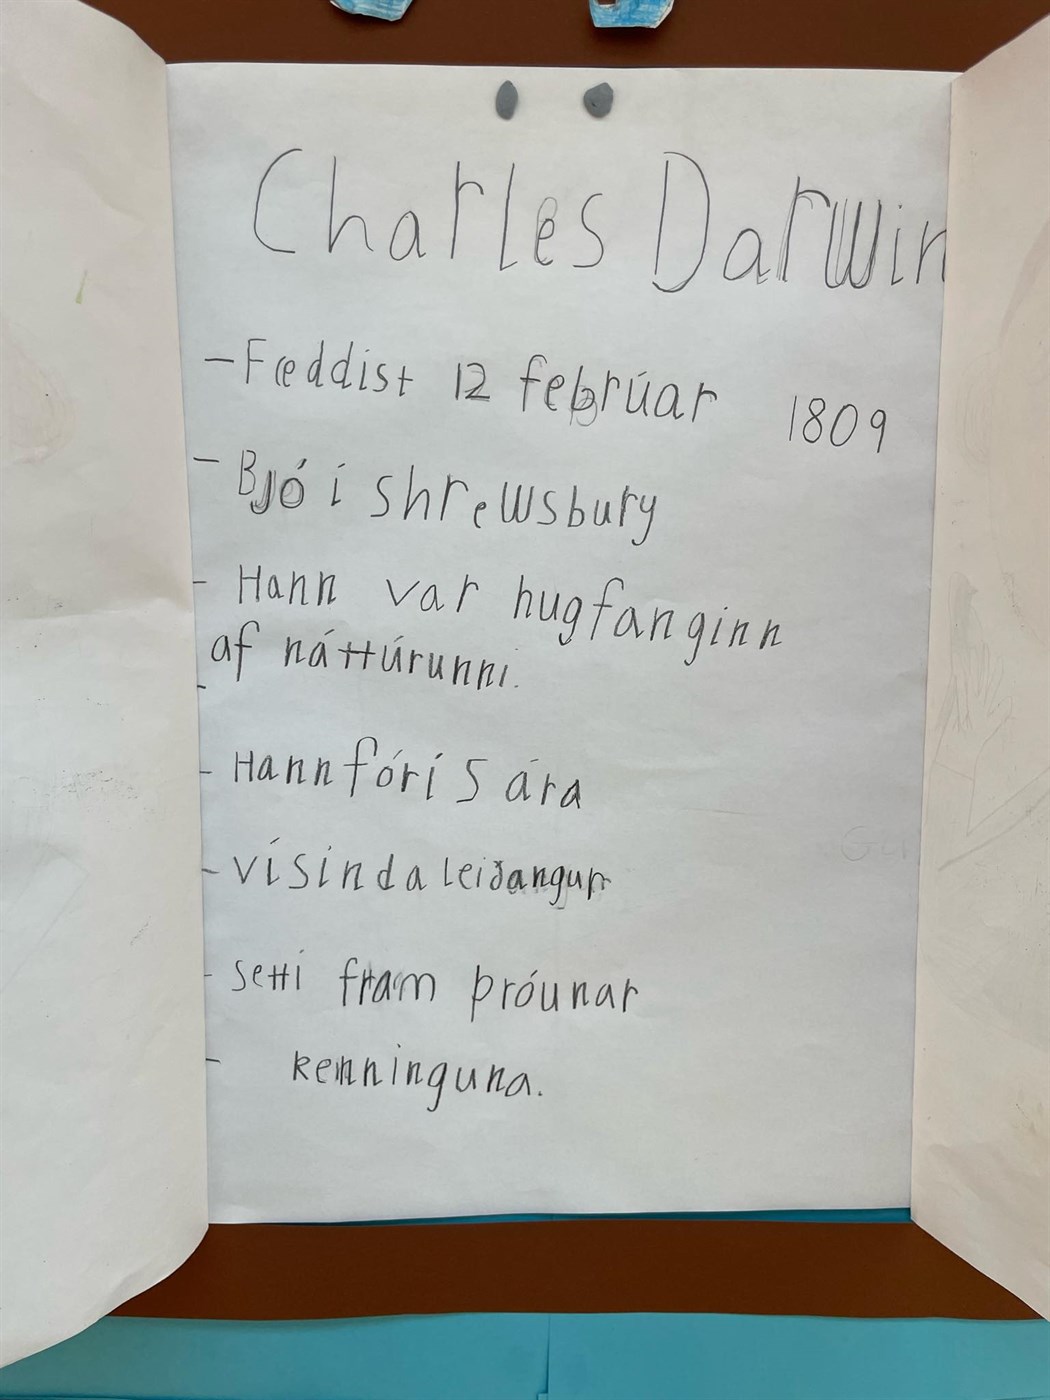 Charles Darwin
- Fæddist 12 febrúar 1809
- Bjó í shrewsbury
- Hann var hugfanginn
af náttúrunni.
-
- Hann fór í 5 ára
- vísinda leiðangur
- setti fram þróunar
- kenninguna.